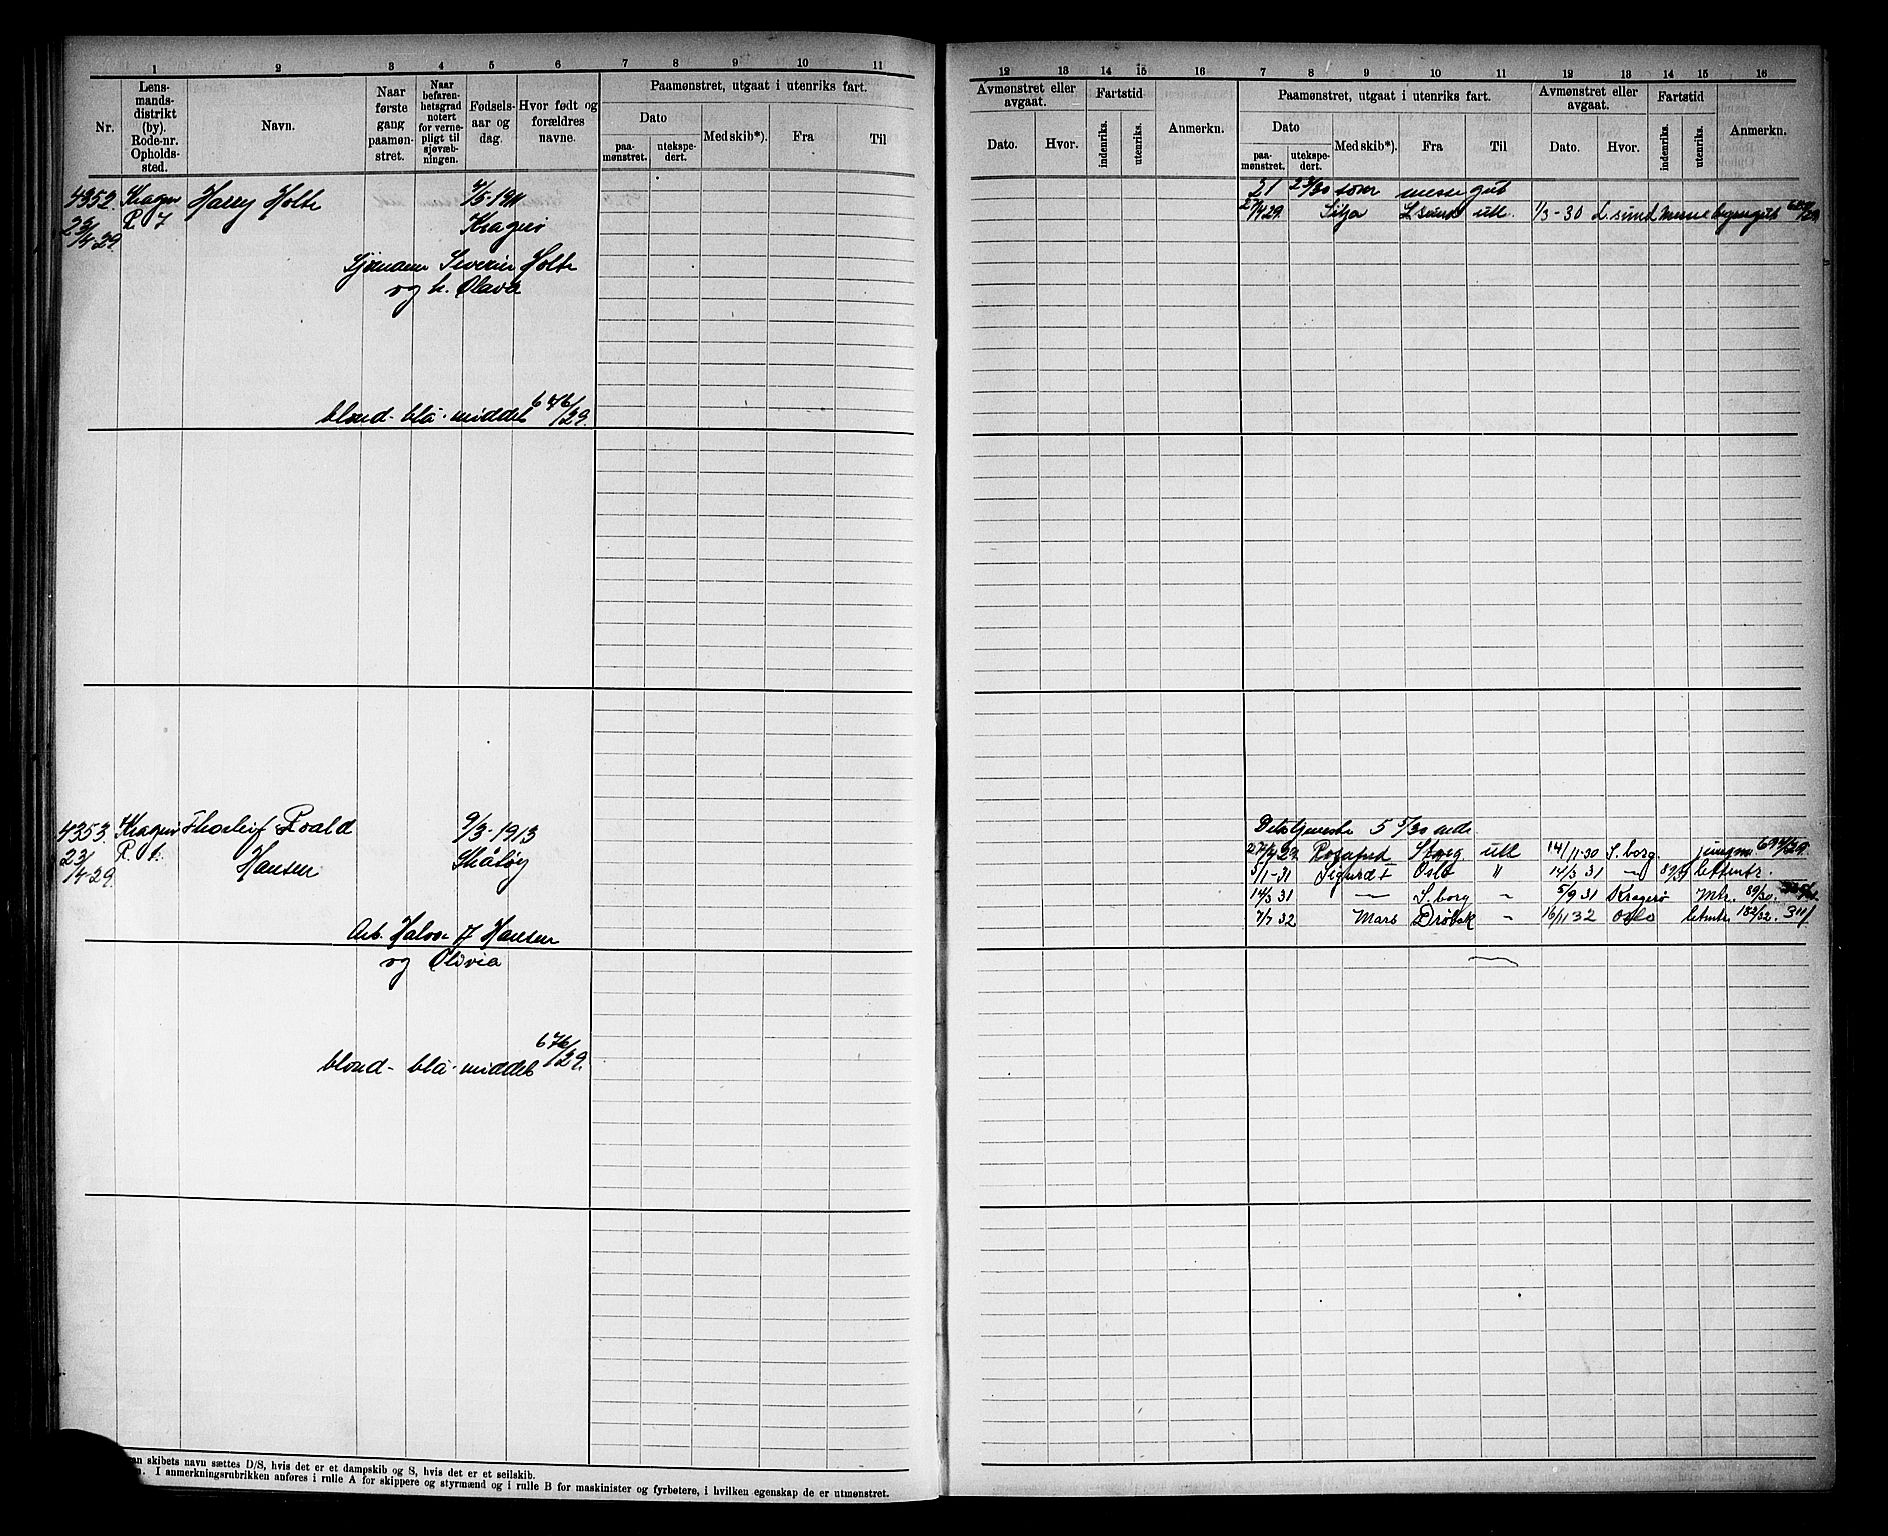 1 2 3 4 5 6 7 8 9 10 11
Nr.
Lens-
mands-
distrikt
(by).
Rode-nr.
Opholds-
sted.
Navn.
Naar
første
gang
paamøn-
stret.
Naar
befaren-
hetsgrad
notert
for verne-
pligt til
sjøvæb-
ningen.
Fødsels-
aar og
dag.
Hvor født og
forældres
navne.
Paamønstret, utgaat i utenriks fart.
Dato
paa-
mønstret.
utekspe-
dert.
Med skib*).
Fra
Til
4352. Kragerø Harry Holte 4/5-1911
23/4-29. R 7 Kragerø
Sjømann Severin Holte
og h. Olava
blond - blå - middel 676/29.
4353. Kragerø Thorleif Roald 9/3-1913
23/4-29. R. 1. Hansen Skåtøy
Arb. Halvor H Hansen
og Olivia
blond - blå - middel 676/29.
an skibets navn sættes D/S, hvis det er et dampskib og S, hvis det er et seilskib.
n. I anmerkningsrubrikken anføres i rulle A for skippere og styrmænd og i rulle B for maskinister og fyrbøtere, i hvilken egenskap de er utmønstret.
12 13 14 15 16 7 8 9 10 11 12 13 14 15 16
Avmønstret eller
avgaat.
Dato.
Hvor.
Fartstid
indenriks.
utenriks.
Anmerkn.
Paamønstret, utgaat i utenriks fart.
Dato
paa-
mønstret.
utekspe-
dert.
Med skib*).
Fra
Til
Avmønstret eller
avgaat.
Dato.
Hvor.
Fartstid
indenriks.
utenriks.
Anmerkn.
21 2 3/30 som messegut
27/4 29. Silja L.sund utl. 1/3-30 L.sund
5 5/30 mdr
27/4 29. Stneg utl 14/11-30 S.borg. jungm
5/1-31 Sigurd Oslo " 14/3 31 — lettmtr.
14/3 31 — S.borg - 5/9 31 Kragerø Mtr. 89/30.
7/7 32 Mars Drøbak - 16/11 32 Oslo letmtr 182/32. 311/